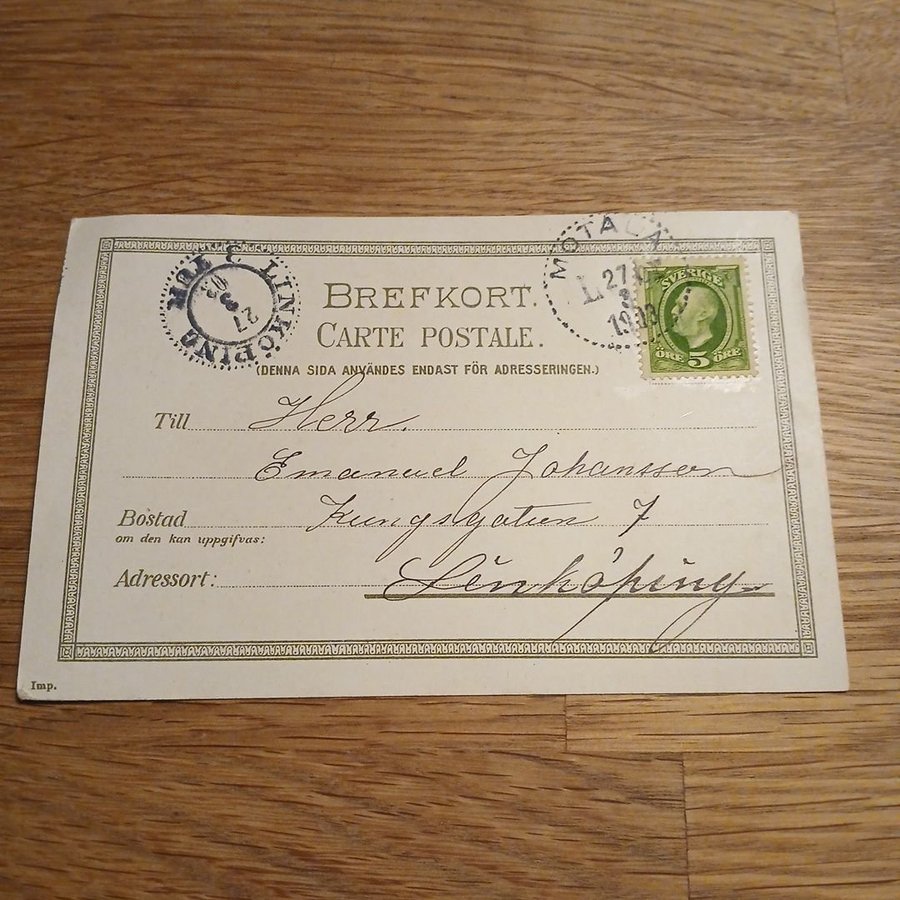 LINKÖPING 2 TUR
27
3
03
MOTALA
L. 27
3
1903
SVERIGE
ÖRE 5 ÖRE
BREFKORT.
CARTE POSTALE.
(DENNA SIDA ANVÄNDES ENDAST FÖR ADRESSERINGEN.)
Till Herr.
Emanuel Johansson
Bostad Kungsgatan 7
om den kan uppgifvas:
Adressort: Linköping
Imp.